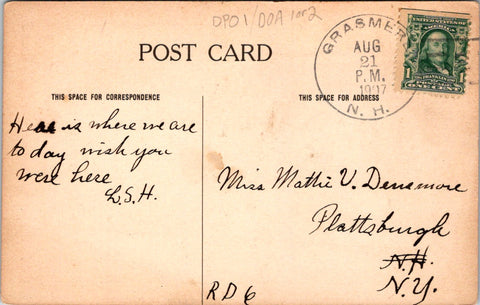 DPO1/DOA 1or2
GRASMERE
AUG
21
P.M.
1907
N. H.
ONE CENT
POST CARD
THIS SPACE FOR CORRESPONDENCE
THIS SPACE FOR ADDRESS
Here is where we are
to day wish you
were here
L.S.H.
Miss Mattie V. Densmore
Plattsburgh
N.H.
N.Y.
RD 6